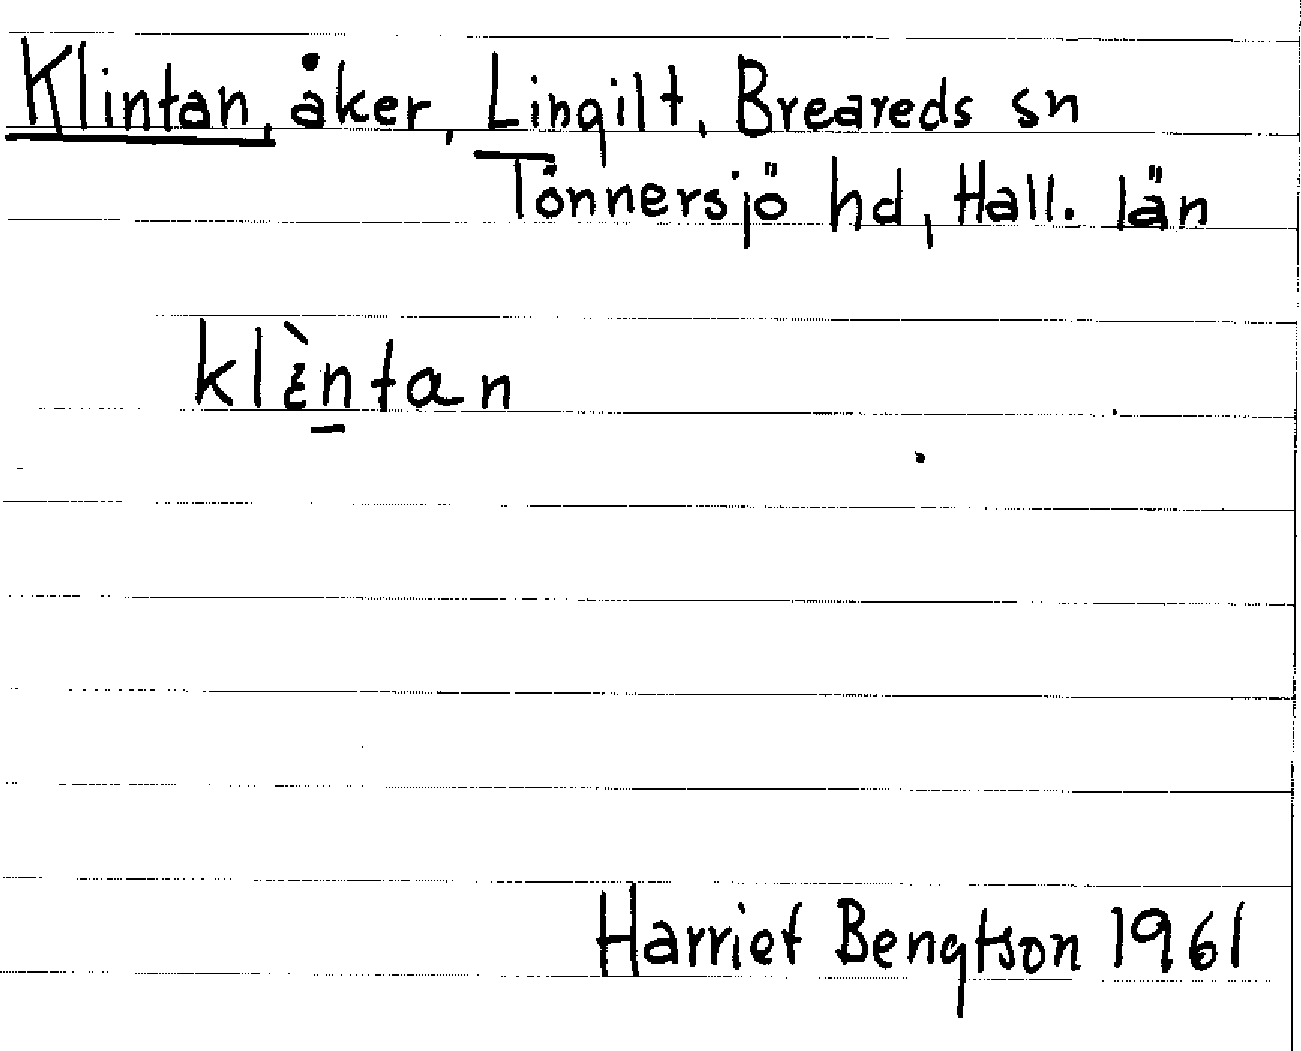 Klintan, åker, Lingilt, Breareds sn
Tönnersjö hd, Hall. län
klèntan
Harriet Bengtson 1961